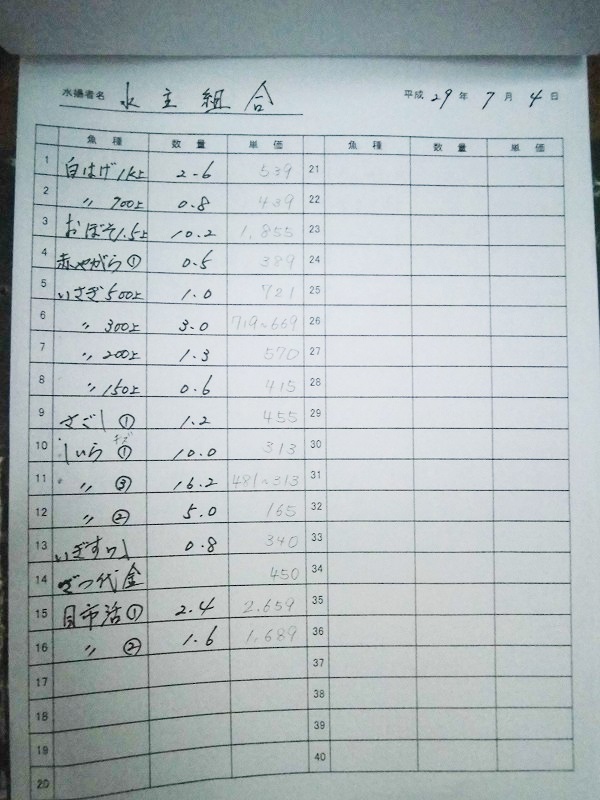 水揚者名 水主組合 平成29年7月4日
魚種 数量 単価 魚種 数量 単価
1 白はげ1k上 2.6 539 21
2 〃 700上 0.8 439 22
3 おぼそ1.5上 10.2 1,855 23
4 赤やがら① 0.5 389 24
5 いさぎ500上 1.0 721 25
6 〃 300上 3.0 719~669 26
7 〃 200上 1.3 570 27
8 〃 150上 0.6 415 28
9 さごし① 1.2 455 29
10 しいら キズ① 10.0 313 30
11 〃 ③ 16.2 481~313 31
12 〃 ② 5.0 165 32
13 いぎす 0.8 340 33
14 ざつ代金 450 34
15 目市活① 2.4 2,659 35
16 〃 ② 1.6 1,689 36
17 37
18 38
19 39
20 40